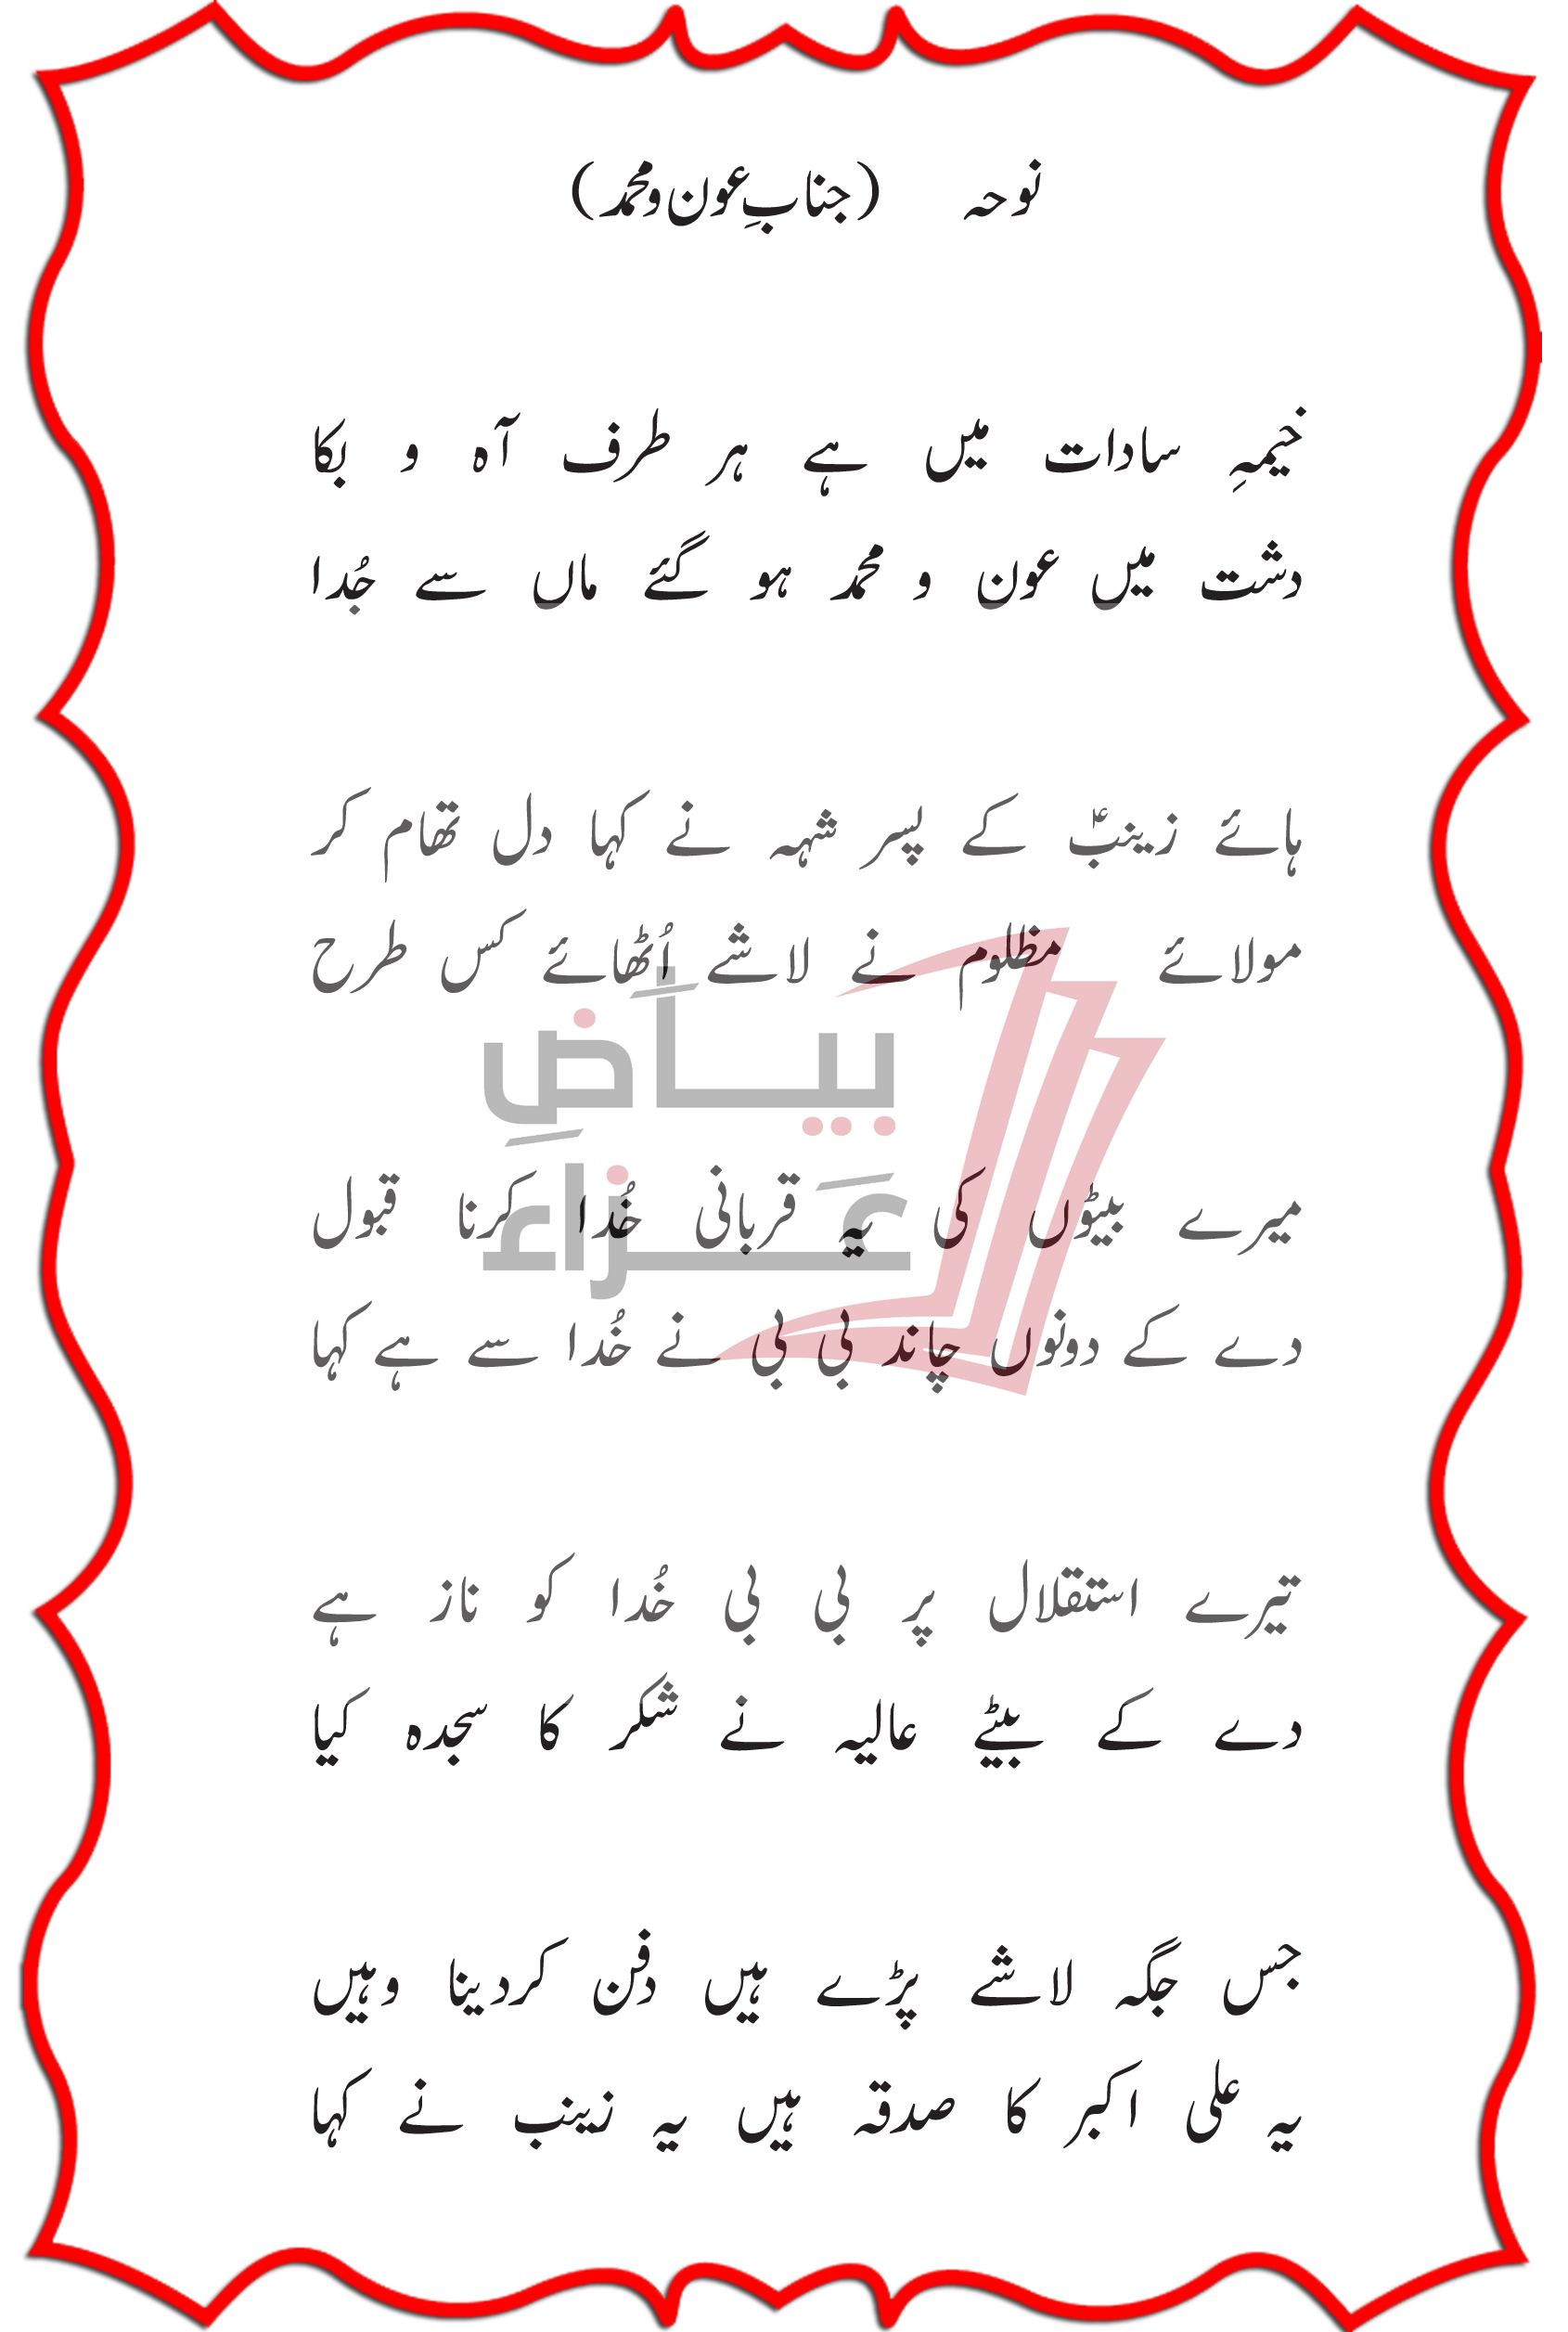 نوحہ (جنابِ عون و محمد)
خیمہِ سادات میں ہے ہر طرف آہ و بکا
دشت میں عون و محمد ہو گئے ماں سے جُدا
ہائے زینبؑ کے پسر شہہ نے کہا دل تھام کر
مولائے مظلوم نے لاشے اُٹھائے کس طرح
بیاضِ
عَزاء
میرے بیٹوں کی یہ قربانی خُدا کرنا قبول
دے کے دونوں چاند بی بی نے خُدا سے ہے کہا
تیرے استقلال پر بی بی خُدا کو ناز ہے
دے کے بیٹے عالیہ نے شکر کا سجدہ کیا
جس جگہ لاشے پڑے ہیں دفن کردینا وہیں
یہ علی اکبر کا صدقہ ہیں یہ زینب نے کہا